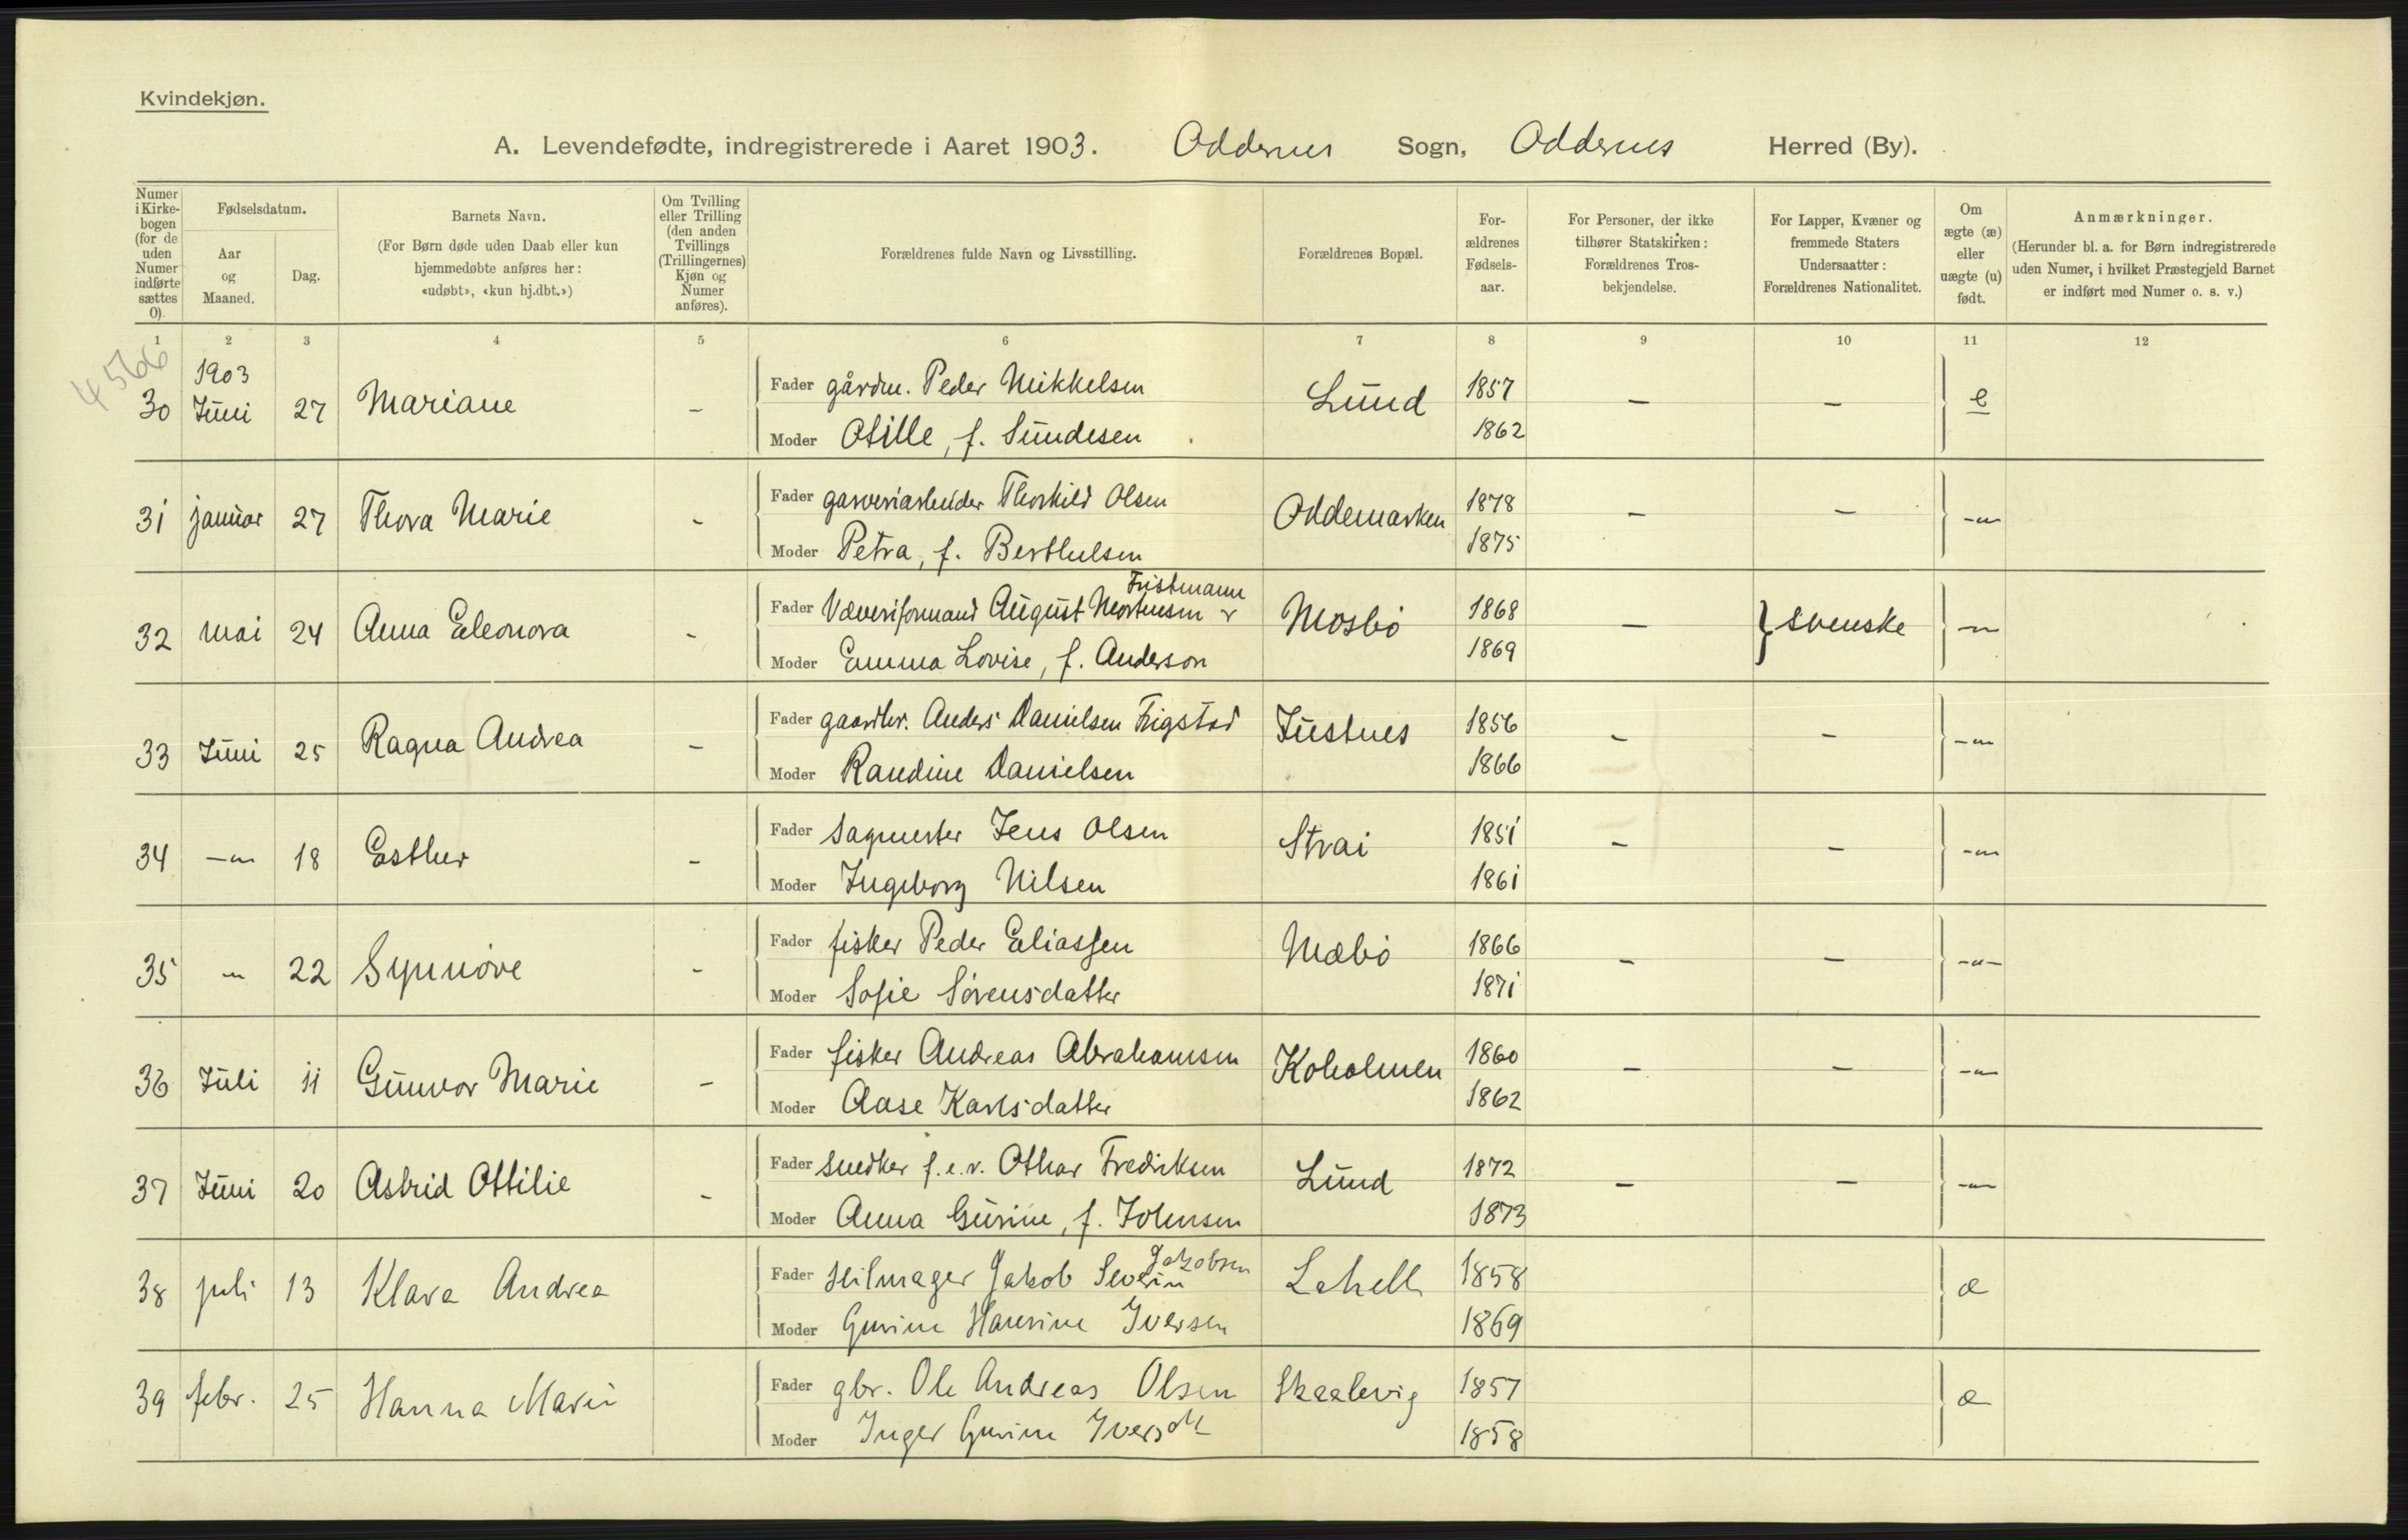 Kvindekjøn.
A. Levendefødte, indregistrerede i Aaret 1903. Oddernes Sogn, Oddernes Herred (By).
Numer i Kirkebogen (for de uden Numer indførte sættes 0). | Fødselsdatum. Aar og Maaned. | Dag. | Barnets Navn. (For Børn døde uden Daab eller kun hjemmedøbte anføres her: «udøbt», «kun hj.dbt.») | Om Tvilling eller Trilling (den anden Tvillings (Trillingernes) Kjøn og Numer anføres). | Forældrenes fulde Navn og Livsstilling. | Forældrenes Bopæl. | Forældrenes Fødselsaar. | For Personer, der ikke tilhører Statskirken: Forældrenes Trosbekjendelse. | For Lapper, Kvæner og fremmede Staters Undersaatter: Forældrenes Nationalitet. | Om ægte (æ) eller uægte (u) født. | Anmærkninger. (Herunder bl. a. for Børn indregistrerede uden Numer, i hvilket Præstegjeld Barnet er indført med Numer o. s. v.)
1 2 3 4 5 6 7 8 9 10 11 12
4566
1903
30 Juni 27 Mariane - Fader gårdm. Peder Mikkelsen Lund 1857 - - e
Moder Otille, f. Sundesen 1862
31 januar 27 Thora Marie - Fader garveriarbeider Thorkild Olsen Oddemarken 1878 - - -"-
Moder Petra, f. Berthelsen 1875
Fristmann
32 mai 24 Anna Eleonora - Fader Væveriformand August Mortensen Mosbö 1868 - } svenske -"-
Moder Emma Lovise, f. Anderson 1869
33 Juni 25 Ragna Andrea - Fader gaardbr. Anders Danielsen Frigstad Justnes 1856 - - -"-
Moder Randine Danielsen 1866
34 -"- 18 Esther - Fader sagmester Jens Olsen Strai 1851 - - -"-
Moder Ingeborg Nilsen 1861
35 -"- 22 Synnöve - Fader fisker Peder Eliassen Mæbö 1866 - - -"-
Moder Sofie Sörensdatter 1871
36 Juli 11 Gunvor Marie - Fader fisker Andreas Abrahamsen Koholmen 1860 - - -"-
Moder Aase Karlsdatter 1862
37 Juni 20 Astrid Ottilie - Fader snedker f.e.r. Othar Fredriksen Lund 1872 - - -"-
Moder Anna Gurine, f. Johnsen 1873
Jakobsen
38 juli 13 Klara Andrea Fader Seilmager Jakob Severin Lahelle 1858 æ
Moder Gurine Hansine Iversen 1869
39 febr. 25 Hanna Marie Fader gbr. Ole Andreas Olsen Skaalevig 1857 æ
Moder Inger Gurine Iversdtr 1858